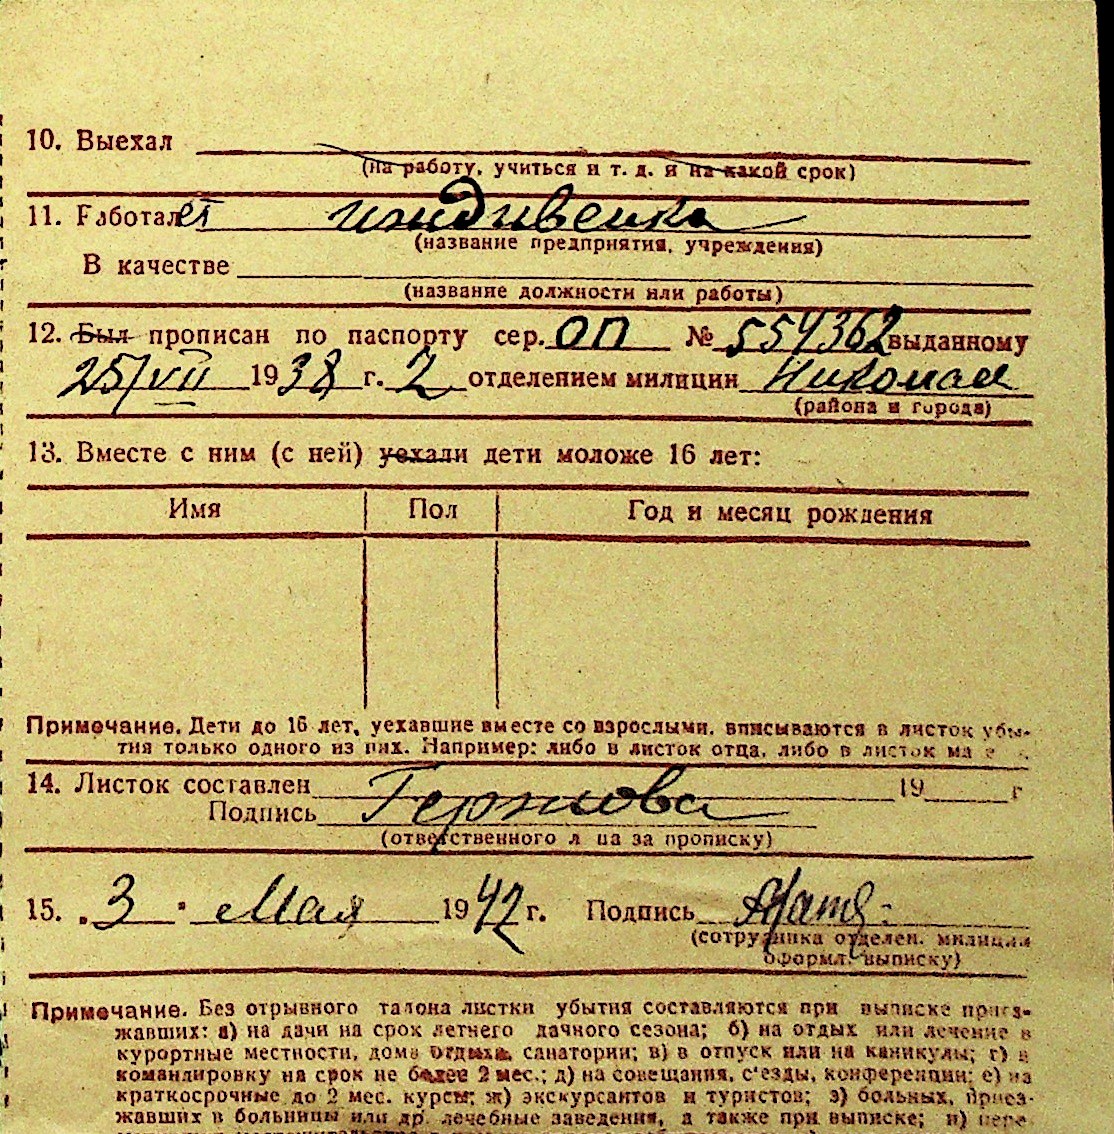 10. Выехал
(на работу, учиться и т. д. и на какой срок)
11. Работает иждивенка
(название предприятия, учреждения)
В качестве
(название должности или работы)
12. Был прописан по паспорту сер. ОП № 554362 выданному
25/VII 1938 г. 2 отделением милиции Николаев
(района и города)
13. Вместе с ним (с ней) уехали дети моложе 16 лет:
Имя Пол Год и месяц рождения
Примечание. Дети до 16 лет, уехавшие вместе со взрослыми, вписываются в листок убы-
тия только одного из них. Например: либо в листок отца, либо в листок
14. Листок составлен 19 г
Подпись
(ответственного лица за прописку)
15. „3" Мая 1942 г. Подпись
(сотрудника отделен. милиции
оформл. выписку)
Примечание. Без отрывного талона листки убытия составляются при выписке приез-
жавших: а) на дачи на срок летнего дачного сезона; б) на отдых или лечение в
курортные местности, дома отдыха, санатории; в) в отпуск или на каникулы; г) в
командировку на срок не более 2 мес.; д) на совещания, с'езды, конференции; е) на
краткосрочные до 2 мес. курсы; ж) экскурсантов и туристов; з) больных, приез-
жавших в больницы или др. лечебные заведения, а также при выписке; и) пере-